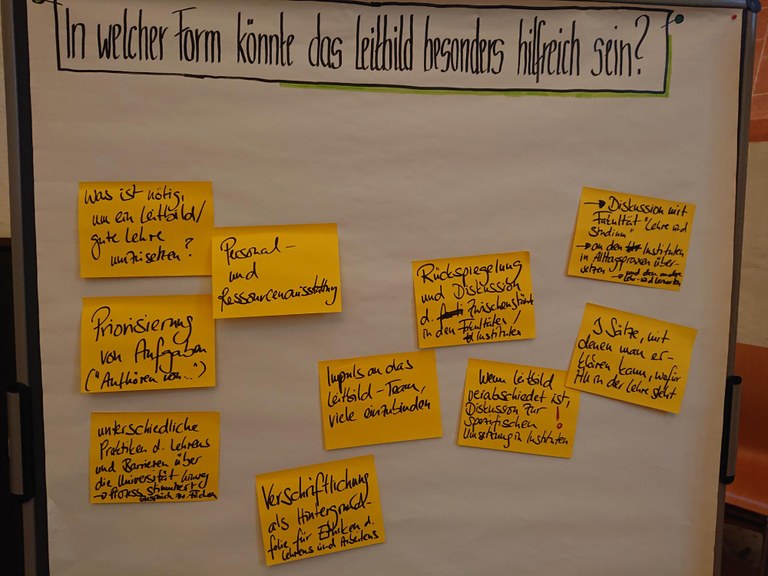 In welcher Form könnte das Leitbild besonders hilfreich sein?
Was ist nötig,
um ein Leitbild/
gute Lehre
umzusetzen?
Personal-
und
Ressourcenausstattung
Priorisierung
von Aufgaben
("Aufhören von...")
unterschiedliche
Praktiken d. Lehrens
und Barrieren über
die Universität hinweg
→ Prozess stimuliert
zw. Fächern
Impuls an das
Leitbild-Team,
viele einzubinden
Verschriftlichung
als Hintergrund-
folie für Ethiken d.
Lehrens und Arbeitens
Rückspiegelung
und Diskussion
d. Zwischenstände
in den Fakultäten/
Instituten
Wenn Leitbild
verabschiedet ist,
Diskussion zur
spezifischen
Umsetzung in Instituten
!
→ Diskussion mit
Fakultät "Lehre und
Studium"
→ an den Instituten
in Alltagspraxen über-
setzen → und den
3 Sätze, mit
denen man er-
klären kann, wofür
in der Lehre steht